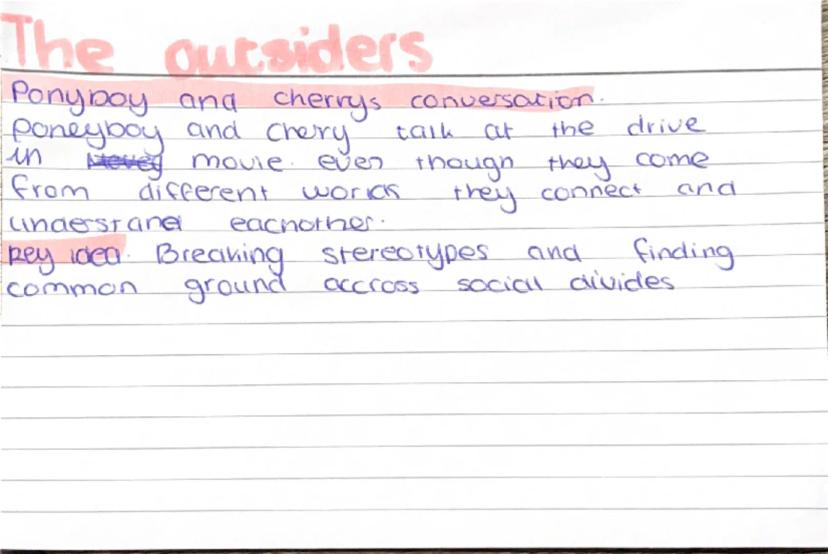 The outsiders
Ponyboy and cherrys conversation.
Poneyboy and chery talk at the drive
in movie. even though they come
from different worlds they connect and
understand eachother.
key idea. Breaking stereotypes and finding
common ground accross social divides